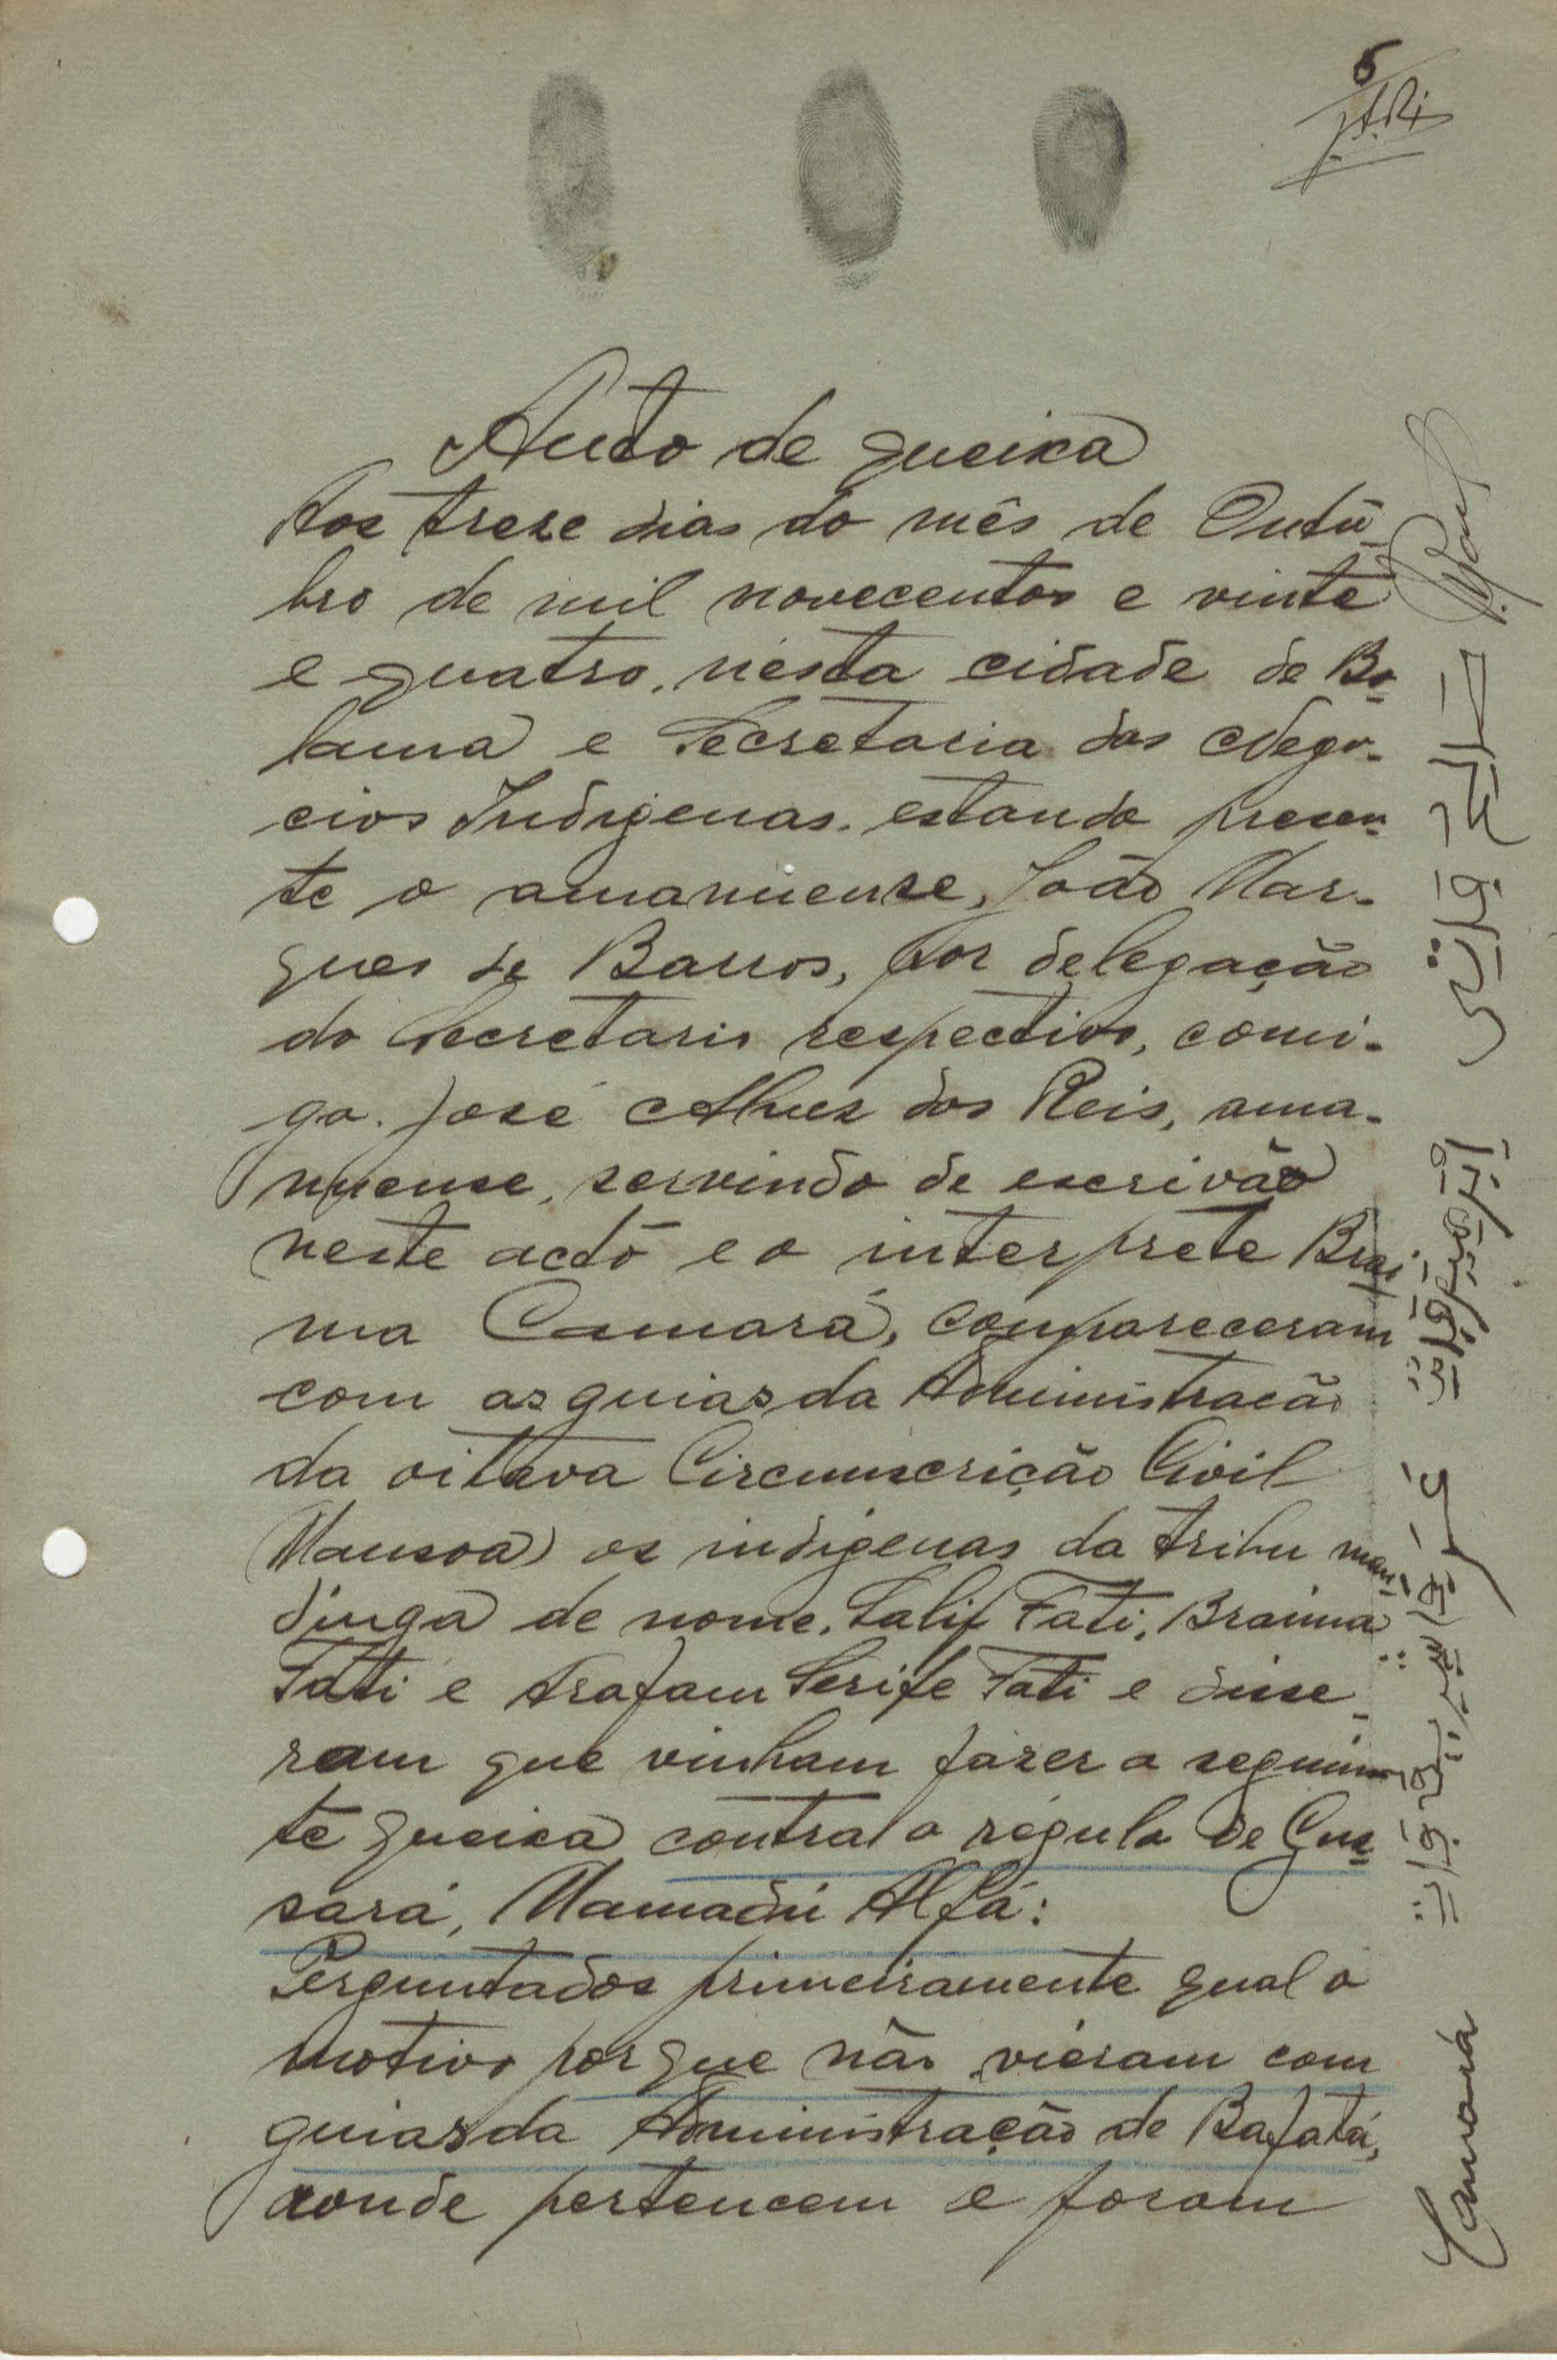 5
Auto de queixa
Aos treze dias do mês de Outu-
bro de mil novecentos e vinte
e quatro, nésta cidade de Bo-
lama e Secretaria dos Nego-
cios Indigenas, estando presen-
te o amanuense, João Mar-
ques de Barros, por delegação
do Secretario respectivo, comi-
go, José Alves dos Reis, ama-
nuense, servindo de escrivão
neste acto e o interprete Brai
ma Camará, compareceram
com as guias da Administração
da oitava Circunscrição Civil
(Mansoa) os indigenas da tribu man-
dinga de nome, Salif Fati, Braima
Fati e Arafam Serife Fati e disse-
ram que vinham fazer a seguin
te queixa contra o régulo de Gus-
sará, Mamadú Alfá:
Perguntados primeiramente qual o
motivo porque não vieram com
guias da Administração de Bafatá,
aonde pertencem e foram
Camará